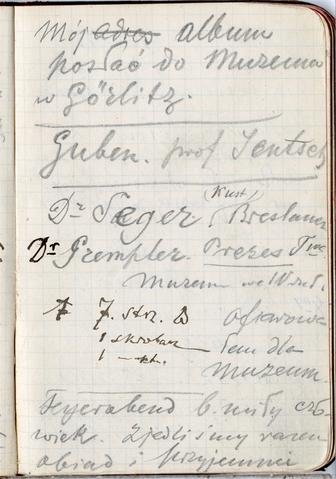 Mój adres album
posłać do Muzeum
w Görlitz.
Guben. prof Jentsch
(Kust)
Dr Seger, Breslauer
Dr Grempler. Prezes Tow
Muzeum we Wrocł.
7. str. Ofiarowa
1 skrobacz łem dla
1 Muzeum
Feyerabend b. miły czło
wiek. Zjedliśmy razem
obiad i przyjemnie